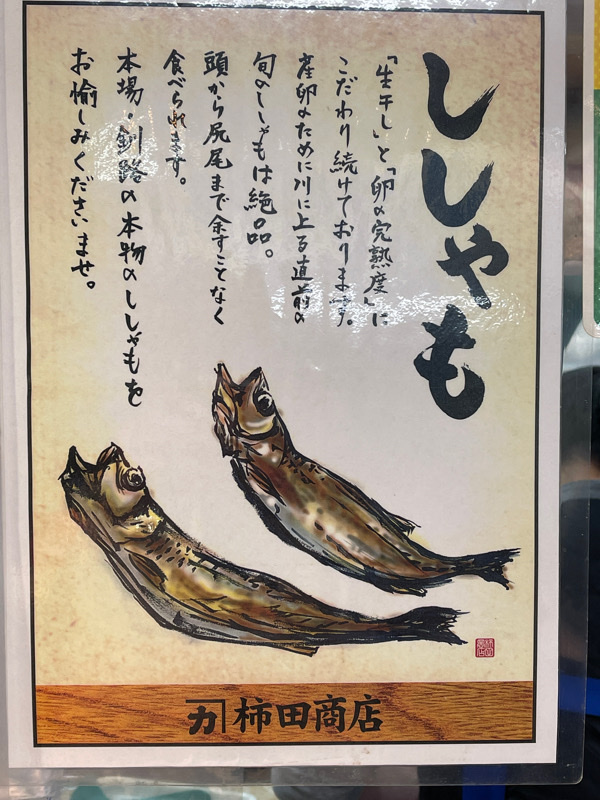 ししゃも
「生干し」と「卵の完熟度」に
こだわり続けております。
産卵のために川に上る直前の
旬のししゃもは絶品。
頭から尻尾まで余すことなく
食べられます。
本場・釧路の本物のししゃもを
お愉しみくださいませ。
カ 柿田商店